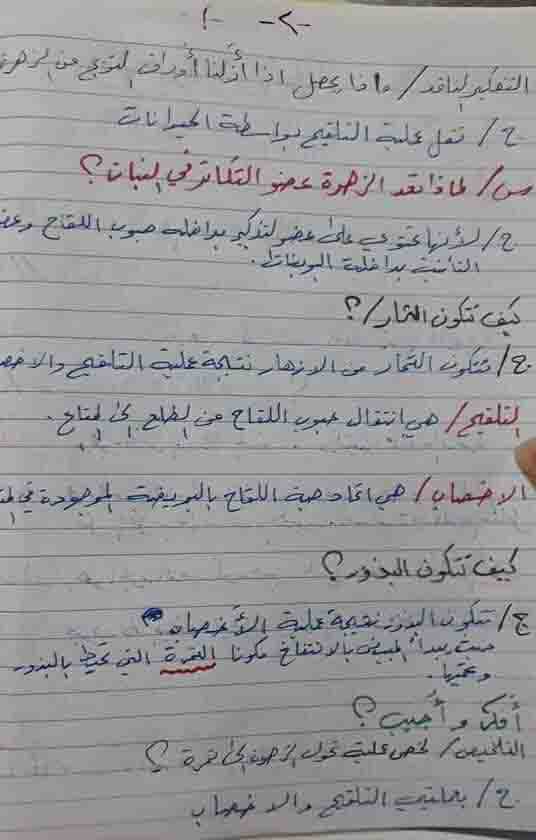 -٢-
التفكير الناقد/ ماذا يحصل اذا أزلنا أوراق التويج من الزهرة
ج/ تقل عملية التلقيح بواسطة الحيوانات
س/ لماذا تعد الزهرة عضو التكاثر في النبات؟
ج/ لأنها تحتوي على عضو التذكير بداخله حبوب اللقاح وعضو
التأنيث بداخله البويضات.
كيف تتكون الثمار/؟
ج/ تتكون الثمار من الازهار نتيجة عملية التلقيح والاخصاب
التلقيح/ هي انتقال حبوب اللقاح من الطلع الى المتاع.
الاخصاب/ هي اتحاد حبة اللقاح بالبويضة الموجودة في
كيف تتكون البذور؟
ج/ تتكون البذور نتيجة عملية الأخصاب
حيث يبدأ المبيض بالانتفاخ مكونا الثمرة التي تحيط بالبذور
وتحميها.
أفكر وأجيب؟
التلخيص/ لخص عملية تحول الزهرة الى ثمرة؟
ج/ بعمليتي التلقيح والاخصاب